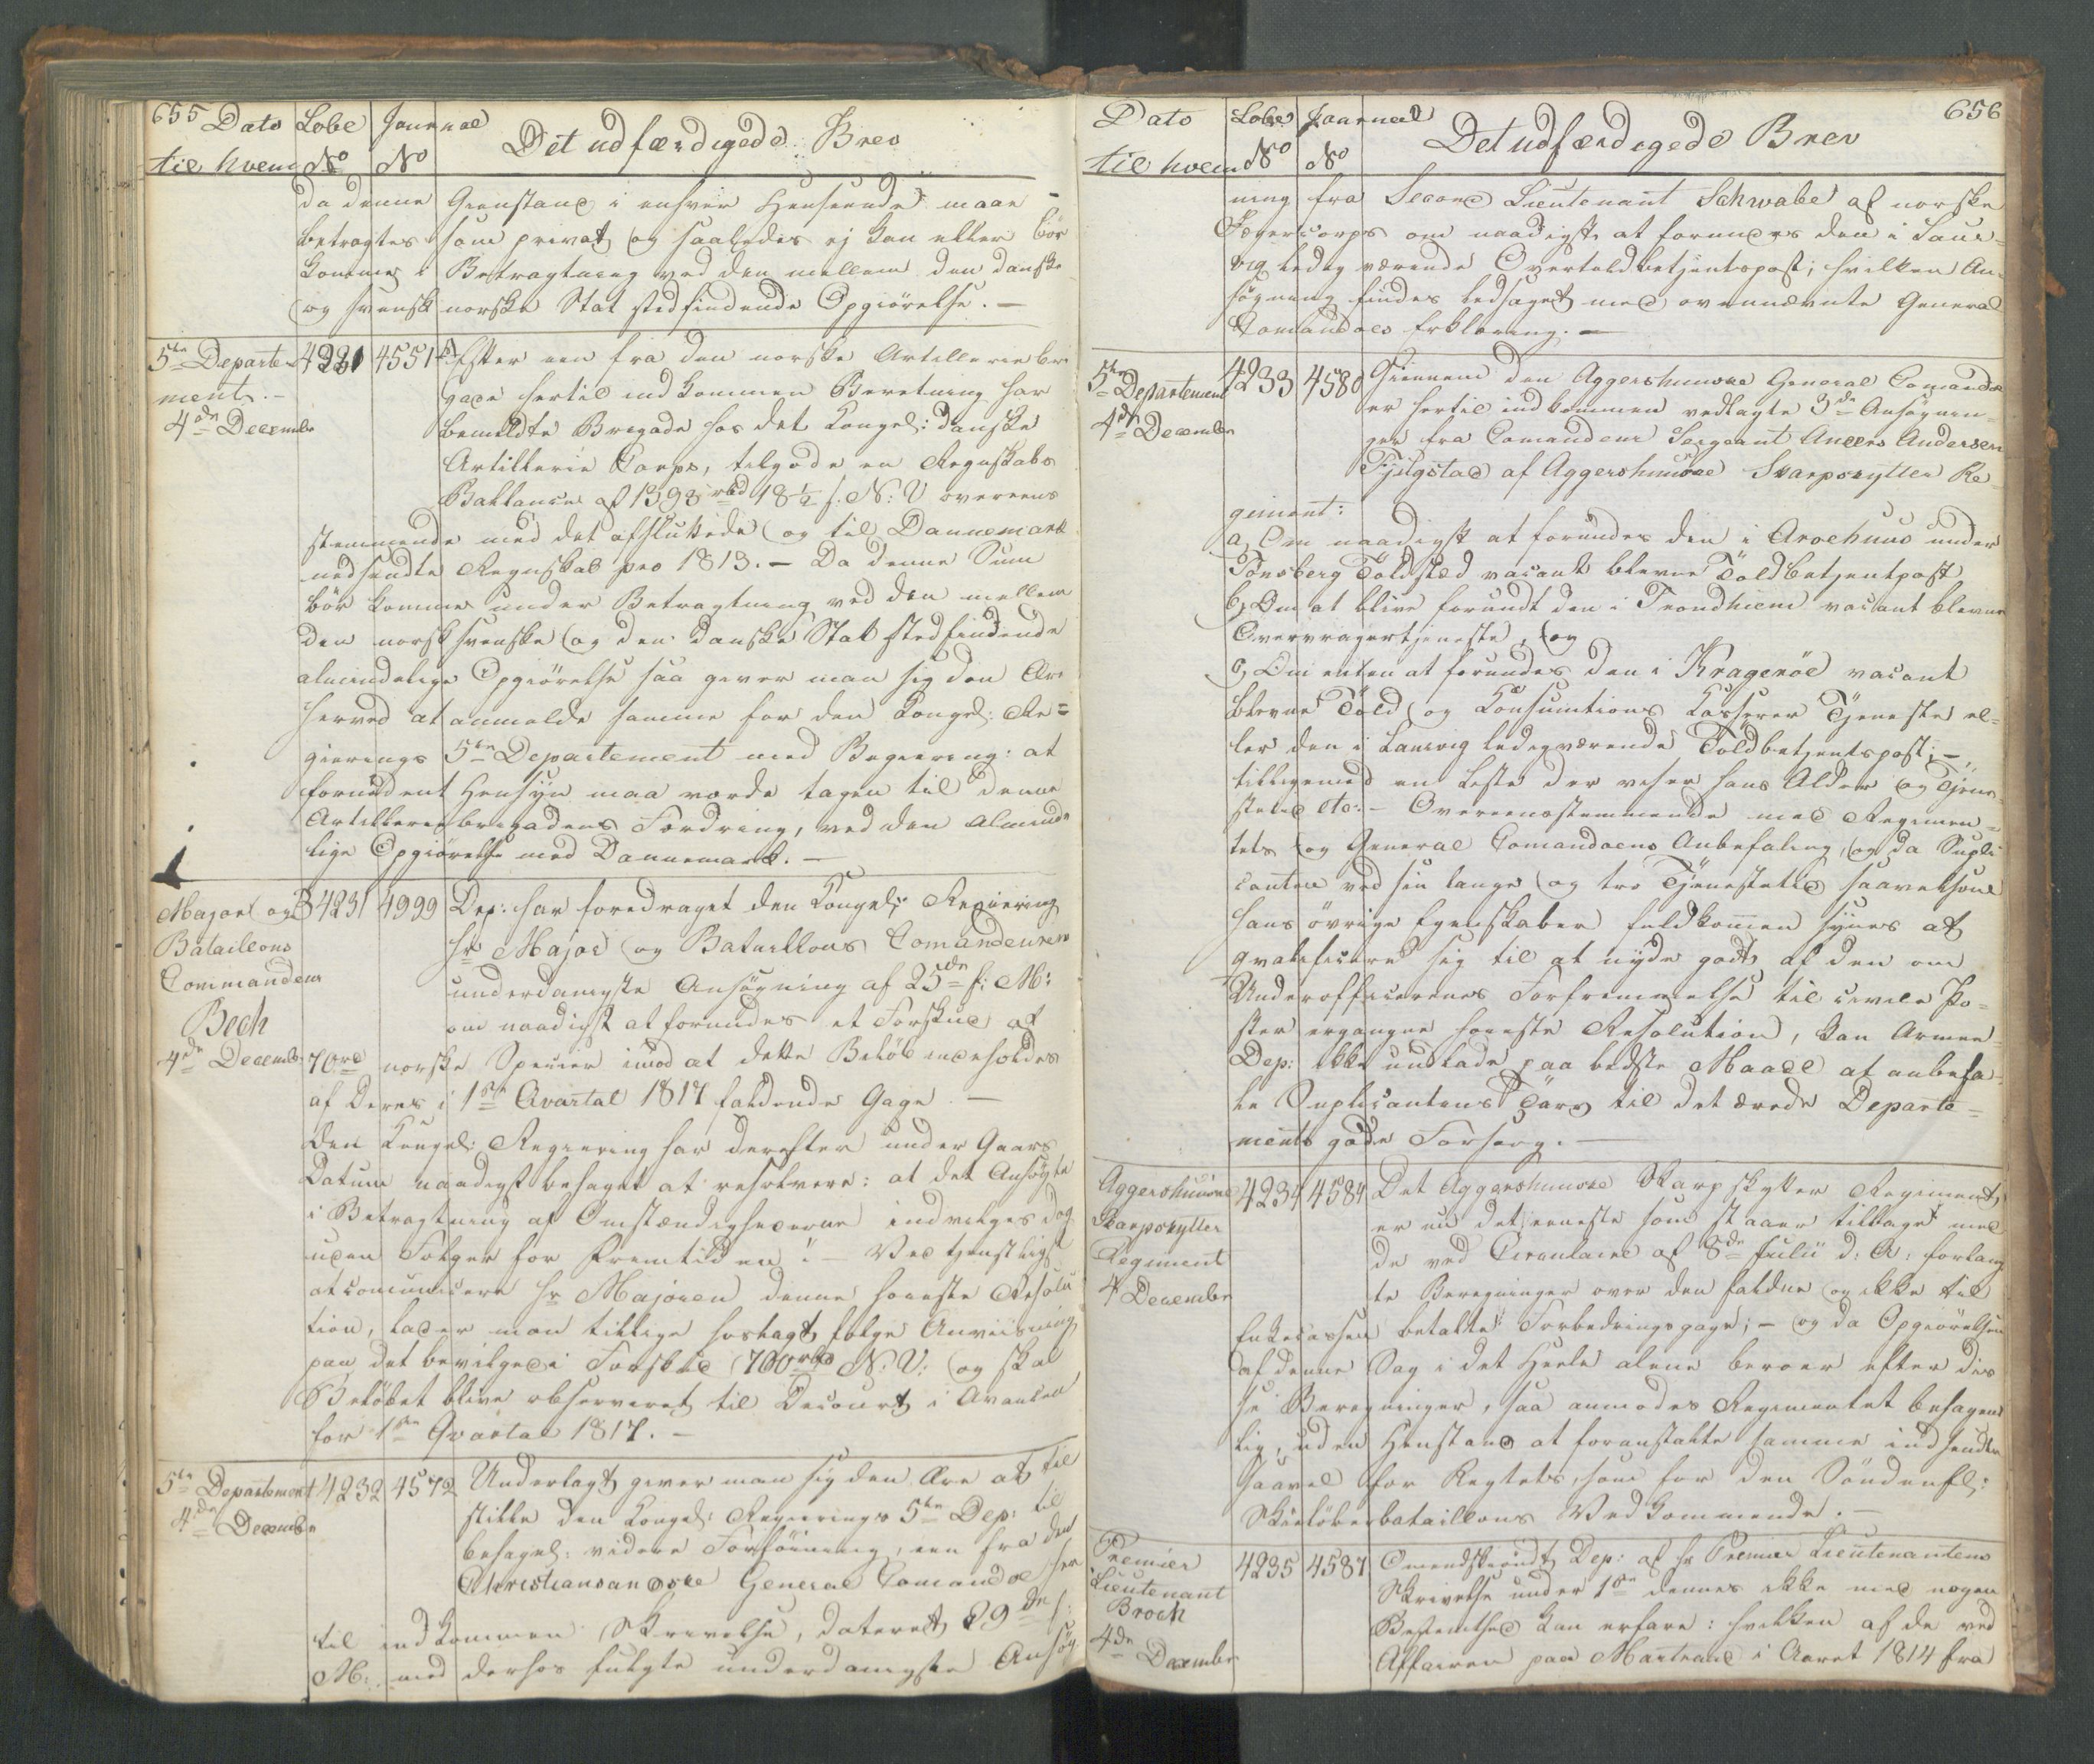 655 Dato Löbe Journal Det udfærdigede Brev
til hvem No No
da denne Gienstand i enhver Henseende maae
betragtes som privat og saaledes ej kan eller bör
komme i Betragtning ved den mellem den danske
og svensk norske Stat stedfindende Opgiörelse. —
5te Departe- 4230 4551 Efter een fra den norske Artilleriebri
ment. - gade hertil indkommen Beretning har
4de Decembr bemeldte Brigade hos det Kongel: danske
Artillerie Corps, tilgode en Regnskabs
Ballance af 1393 rbd 18½ s. N: V overeens
stemmende med det afsluttede og til Dannemark
nedsendte Regnskab pro 1813. — Da denne Sum
bör komme under Betragtning ved den mellem
den norsk svenske og den danske Stat stedfindende
almindelige Opgiörelse saa giver man sig den Ære
herved at anmelde samme for den Kongel: Re=
gierings 5te Departement med Begiering: at
fornödent Hensyn maa vorde tagen til denne
Artilleriebrigadens Fordring, ved den alminde
lige Opgiörelse med Dannemark. —
Major og 4231 4999 Dep: har foredraget den Kongel: Regiering
Batailons Hr Major og Bataillons Comandeurens
Commandeur underdanigste Ansögning af 25de f: M:
Bech om naadigst at forundes et Forskud af
4de Decembr 70 rd norske Specier imod at dette Belöb indeholdes
af Deres i 1ste Qvartal 1817 faldende Gage —
Den Kongel: Regiering har derefter under Gaars
Datum naadigst behaget at resolvere: at det Ansögte
i Betragtning af Omstændighederne indvilges dog
uden Fölger for Fremtiden". — Ved tienstligst
at comunicere Hr Majoren denne höieste Resolu
tion, lader man tillige hoslagt fölge Anviisning
paa det bevilgede Forskud (700 rbd N: V: og skal
Belöbet blive observeret til Decourt i Avancen
for 1ste Qvartal 1817. —
5te Departement 4232 4572 Underlagt giver man sig den Ære at til
4de Decembr stille den Kongel: Regierings 5te Dep: til
behagel: videre Forföining, een fra det
Christiansandske General Comando her
til indkommen Skrivelse, dateret 29de f:
M: med derhos fulgte underdanigste Ansög
Dato Löbe Journal Det udfærdigede Brev 656
til hvem No No
ning fra Second Lieutenant Schwabe af norske
Jægercorps om naadigst at forundes den i Laur-
vig ledig værende Overtoldbetjentspost; hvilken An-
sögning findes ledsaget med ovennævnte General
Comandoes Erklæring. —
5te Departement 4233 4580 Giennem den Aggershuusske General Comando
4de Decembr er hertil indkommen vedlagte 3de Ansögnin-
ger fra Comandeur Sergeant Anders Andersen
Fjilgstad af Aggershuuske Skarpskytter Re
giment:
a, Om naadigst at forundes den i Aroehuus under
Tönsberg Toldsted vacant blevne Toldbetjentpost
b, Om at blive forundt den i Trondhiem vacant blevne
Overvragertjeneste, og
c, Om enten at forundes den i Krageröe vacant
blevne Told og Consumtions Casserer Tjeneste el-
ler den i Laurvig ledigværende Toldbetjentspost; —
tilligemed en Liste der viser hans Alder og Tjene-
stetid etc. — Overeensstemmende med Regimen-
tets og General Comandoens Anbefaling, og da Supli
canten ved sin lange og tro Tjenestetid saavelsom
hans övrige Egenskaber fuldkomen synes at
qvalificere sig til at nyde godt af den om
Underofficerenes Forfremmelse til civile Po-
ster ergangne höieste Resolution, kan Armee
Dep: ikke undlade paa bedste Maade at anbefa-
le Suplicantens Tarv til det ærede Departe-
ments gode Forsorg. —
Aggershuuske 4234 4584 Det Aggershuuske Skarpskytter Regiment
Skarpskytter er nu det eeneste som staaer tilbage med
Regiment de ved Circulaire af 8de Julii d: A: forlang
4 Decembr te Beregninger over den faldne og ikke til
Enkecassen betalte Forbedringsgage; — og da Opgiörelsen
af denne Sag i det Heele alene beroer efter dis
se Beregninger, saa anmodes Regimentet behagen
lig, uden Henstand at foranstalte samme indsendte
saavel for Regtets, som for den Söndenfl:
Skielöberbataillons Vedkommende. —
Premier 4235 4587 Omendskiöndt Dep: af Hr Premier Lieutenantens
Lieutenant Skrivelse under 1ste dennes ikke med nogen
Broch Bestemthed kan erfare: hvilken af de ved
4de Decembr Affairen paa Mastrand i Aaret 1814 fra